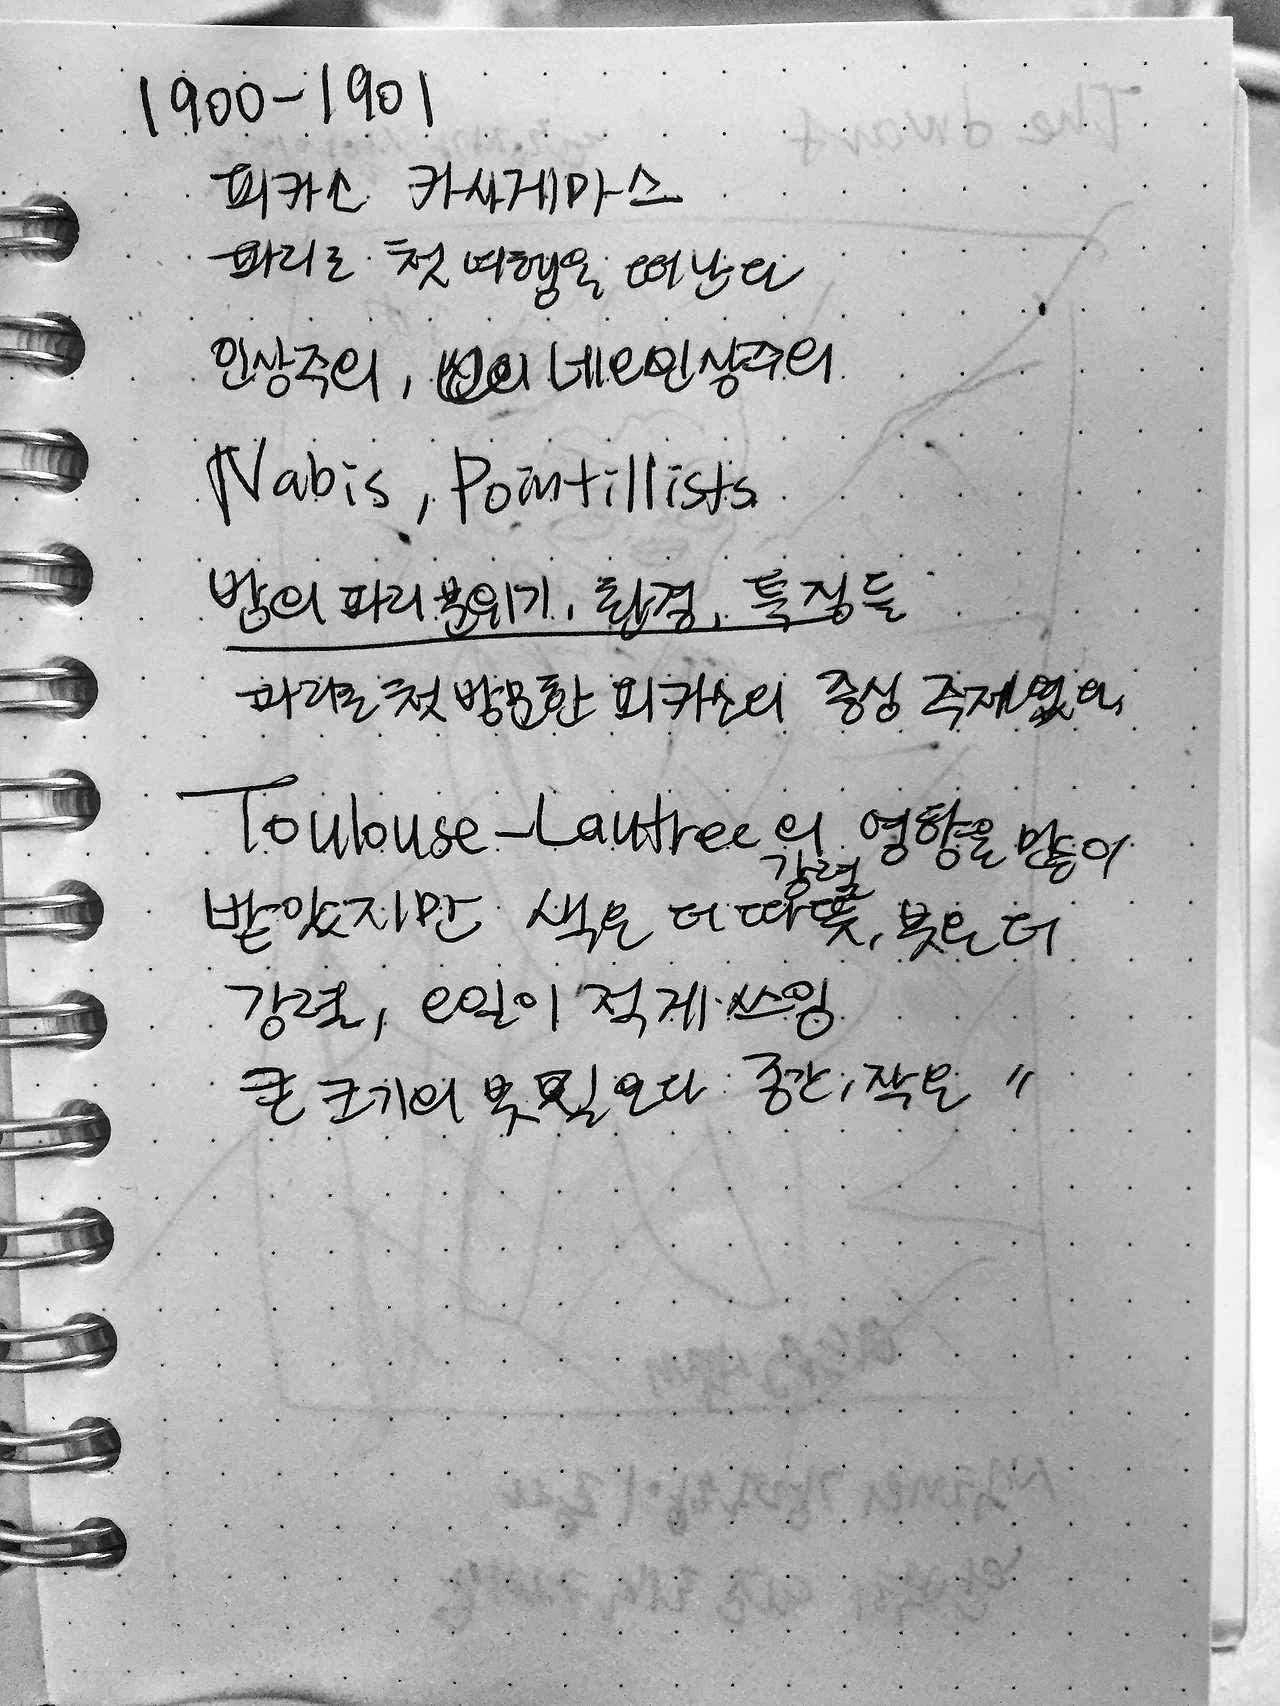 1900-1901
피카소 카사게마스
파리로 첫 여행을 떠난다
인상주의, 네오인상주의
Nabis, Pointillists
밤의 파리 분위기, 환경, 특징들
파리로 첫 방문한 피카소의 중심 주제였다
Toulouse-Lautrec의 영향을 많이
강렬
받았지만 색은 더 따뜻, 붓은 더
강렬, 오일이 적게 쓰임
큰 크기의 붓필 보다 중간, 작은 〃
The dwarf